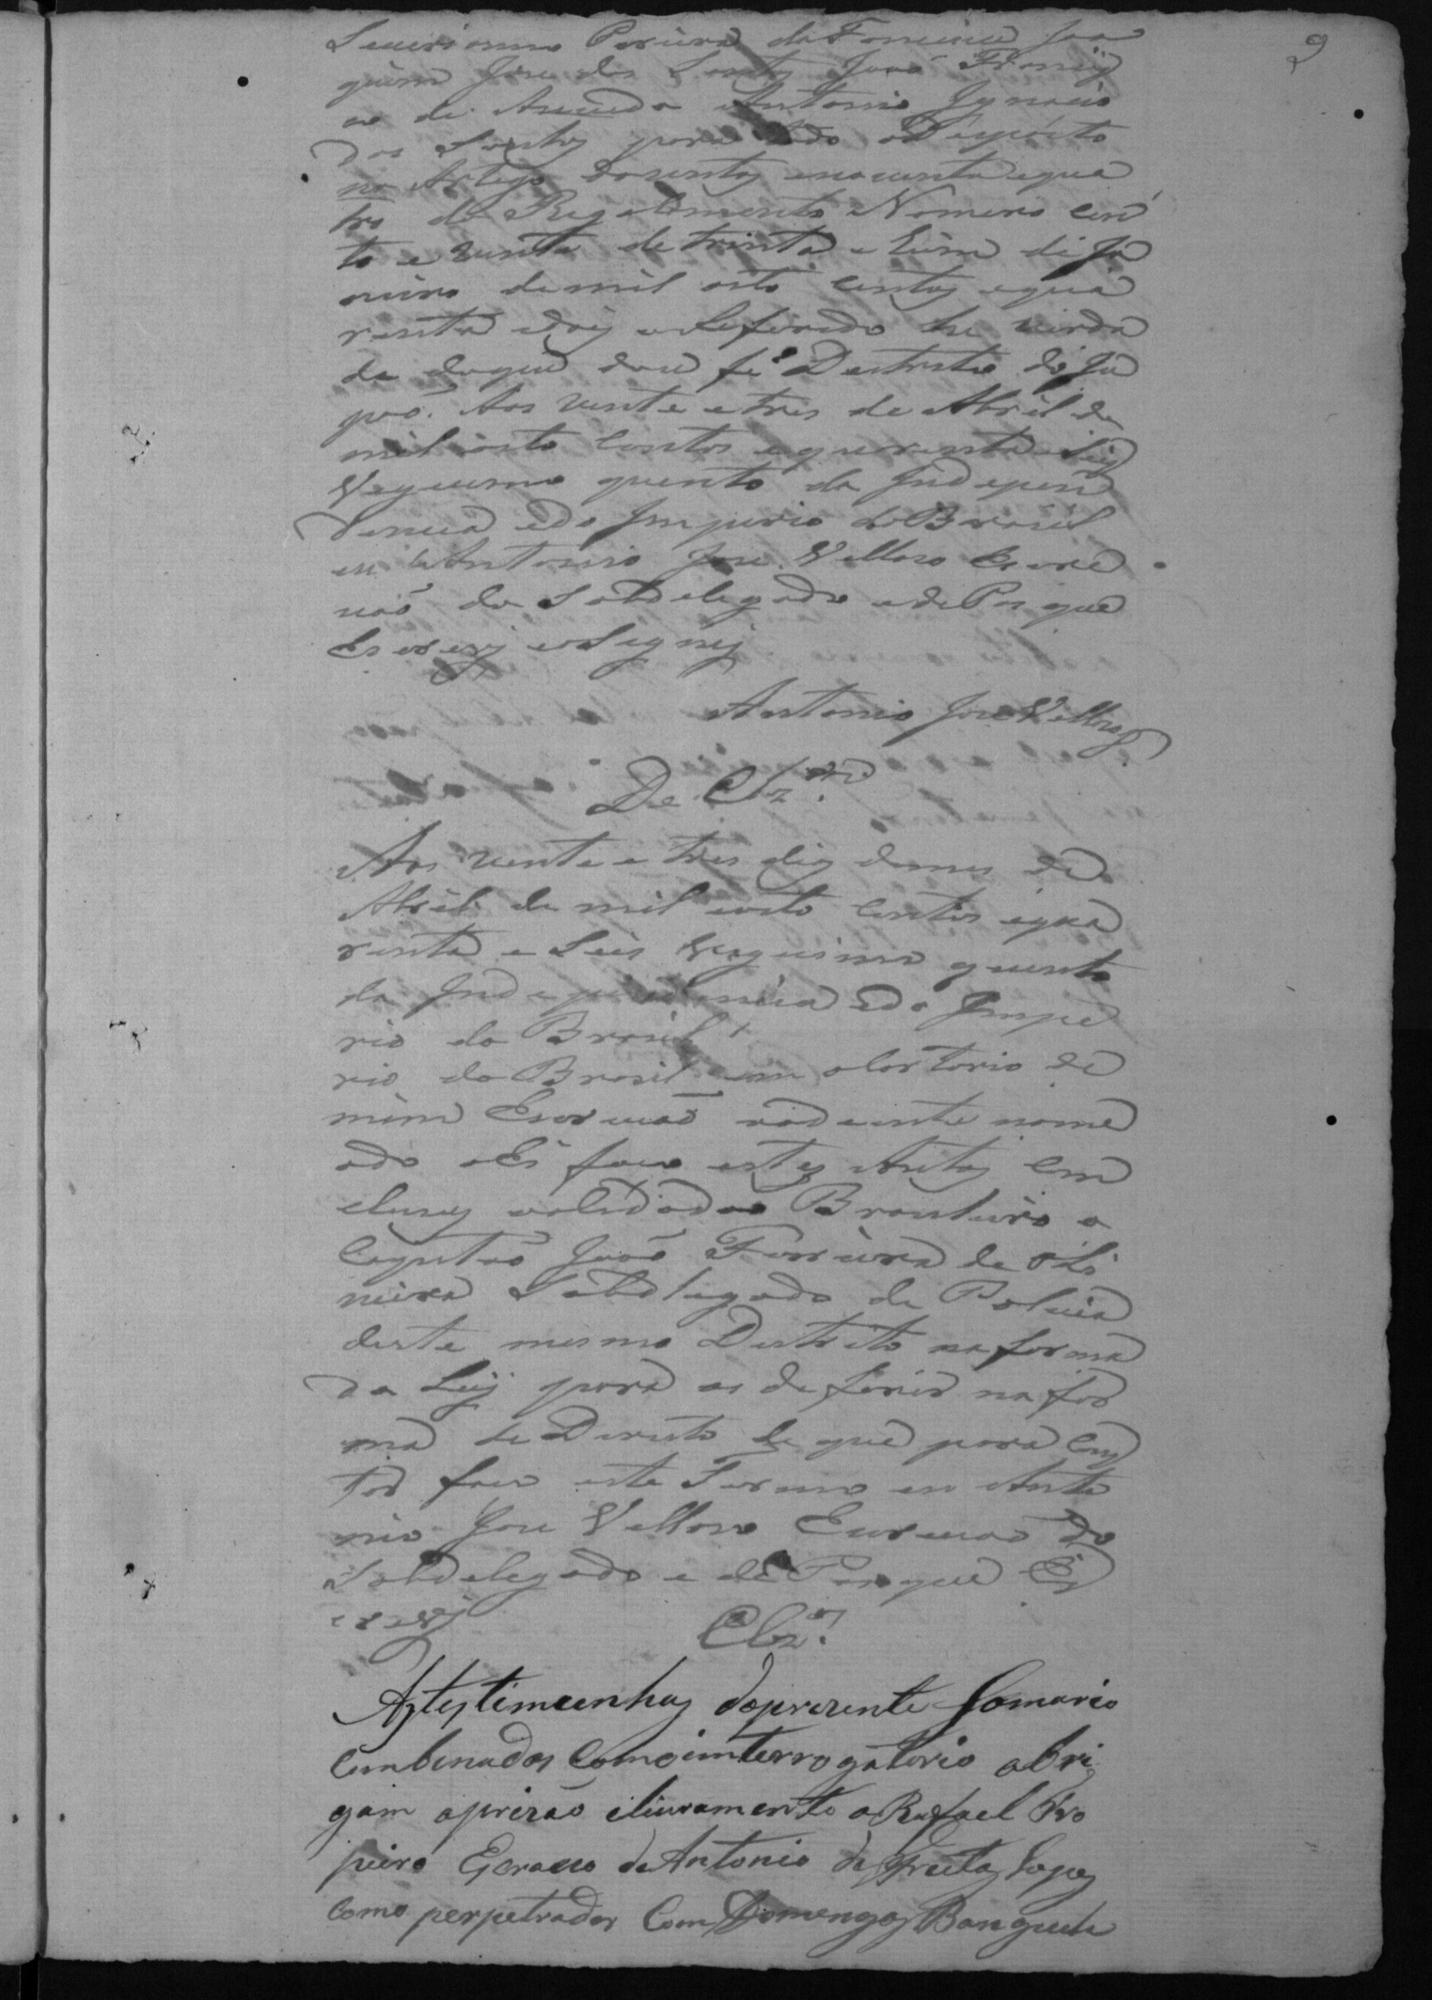 9
Severianno Pereira da Fonceica Joa
quim Jose dos Santos João Franciz
co de Azevedo Antonio Ignacio
dos Santos para todo odisposto
no Artigo dozentos e nocenta equa
tro do Regolamento Nomero cen
to e vinte de trinta e hum de Ja
neiro de mil oito centos equa
renta edois o Referido he verda
de doque dou fé Destrito do Ja
po. Aos vinte e tres de Abril de
mil oito centos e quarenta e Seis
Vegecimo quinto da Indepen
dencia edo Imperio do Brasil
eu Antonio Jose Vellozo Escre
vaõ do Sobdelegado e de Pas que
Escrevy e o Signey
Antonio Jose Vellozo
De Clz.am
Aos vente e tres dias do mes de
Abril de mil oito centos e qua
renta e Seis Vegecimo quinto
da Independencia edo Impe
rio do Brasil
rio do Brasil em o Cartorio de
mim Escrivaõ adiante nome
ado e Es faço estes Autos con
cluzos ao Cidadaõ Brasileiro o
Capitaõ Joaõ Ferreira de Oli
veira Sobdelegado de Policia
deste mesmo Destrito na forma
da Ley para os deferir na for
ma de Dereito de que para Cons
tar faco este Termo eu Anto
nio Jose Vellozo Escrivaõ do
Sobdelegado e de Pas que Es
crevy
Clz.m
As testimunhas do prezente Somario
combenados Com o imterrogatorio obri
gam a prizão e livramento a Rafael Tro
peiro Escravo de Antonio de Freitas Lopes
como perpetrador Com Domengos Banguela